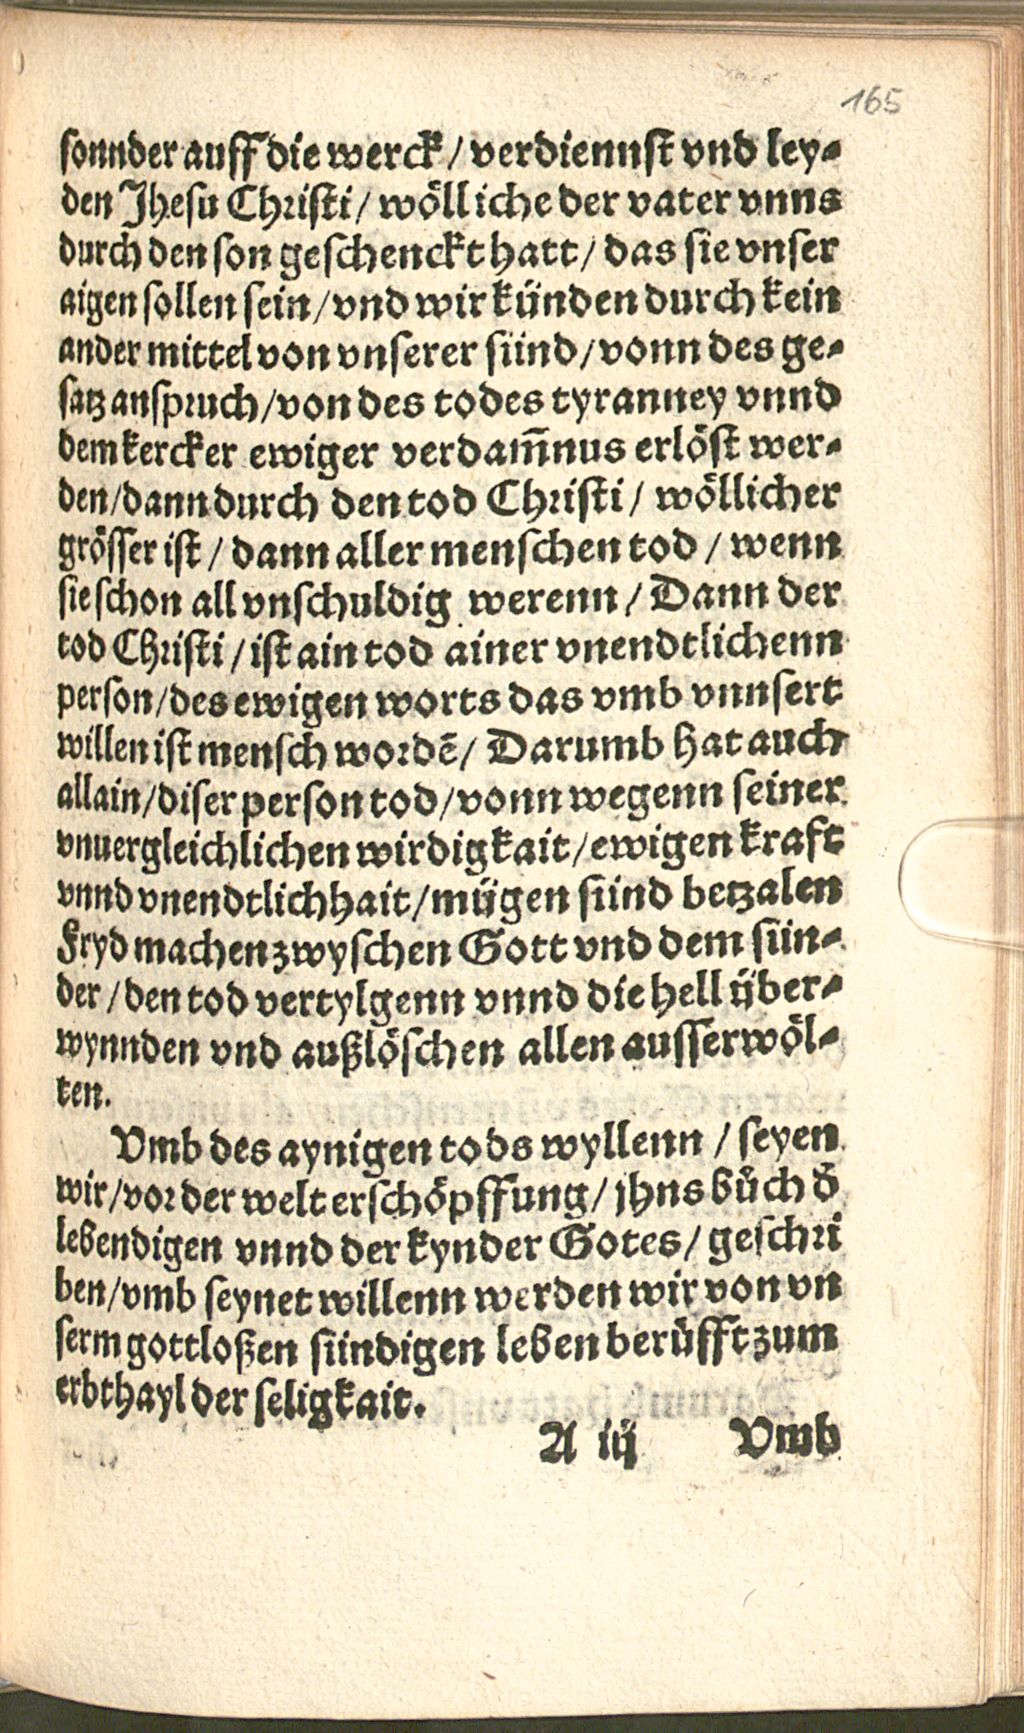 165
sonnder auff die werck / verdiennst vnd ley-
den Jhesu Christi / wölliche der vater vnns
durch den son geschenckt hatt / das sie vnser
aigen sollen sein / vnd wir künden durch kein
ander mittel von vnserer sünd / vonn des ge-
satz anspruch / von des todes tyranney vnnd
dem kercker ewiger verdam̄nus erlöst wer-
den / dann durch den tod Christi / wöllicher
grösser ist / dann aller menschen tod / wenn
sie schon all vnschuldig werenn / Dann der
tod Christi / ist ain tod ainer vnendtlichenn
person / des ewigen worts das vmb vnnsert
willen ist mensch wordē / Darumb hat auch
allain / diser person tod / vonn wegenn seiner
vnuergleichlichen wirdigkait / ewigen kraft
vnnd vnendtlichhait / mügen sünd betzalen
Fryd machen zwyschen Gott vnd dem sün-
der / den tod vertylgenn vnnd die hell über-
wynnden vnd außlöschen allen ausserwöl-
ten.
Vmb des aynigen tods wyllenn / seyen
wir / vor der welt erschöpffung / jhns bůch d̕
lebendigen vnnd der kynder Gotes / geschri
ben / vmb seynet willenn werden wir von vn
serm gottloßen sündigen leben berüfft zum
erbthayl der seligkait.
A iij Vmb